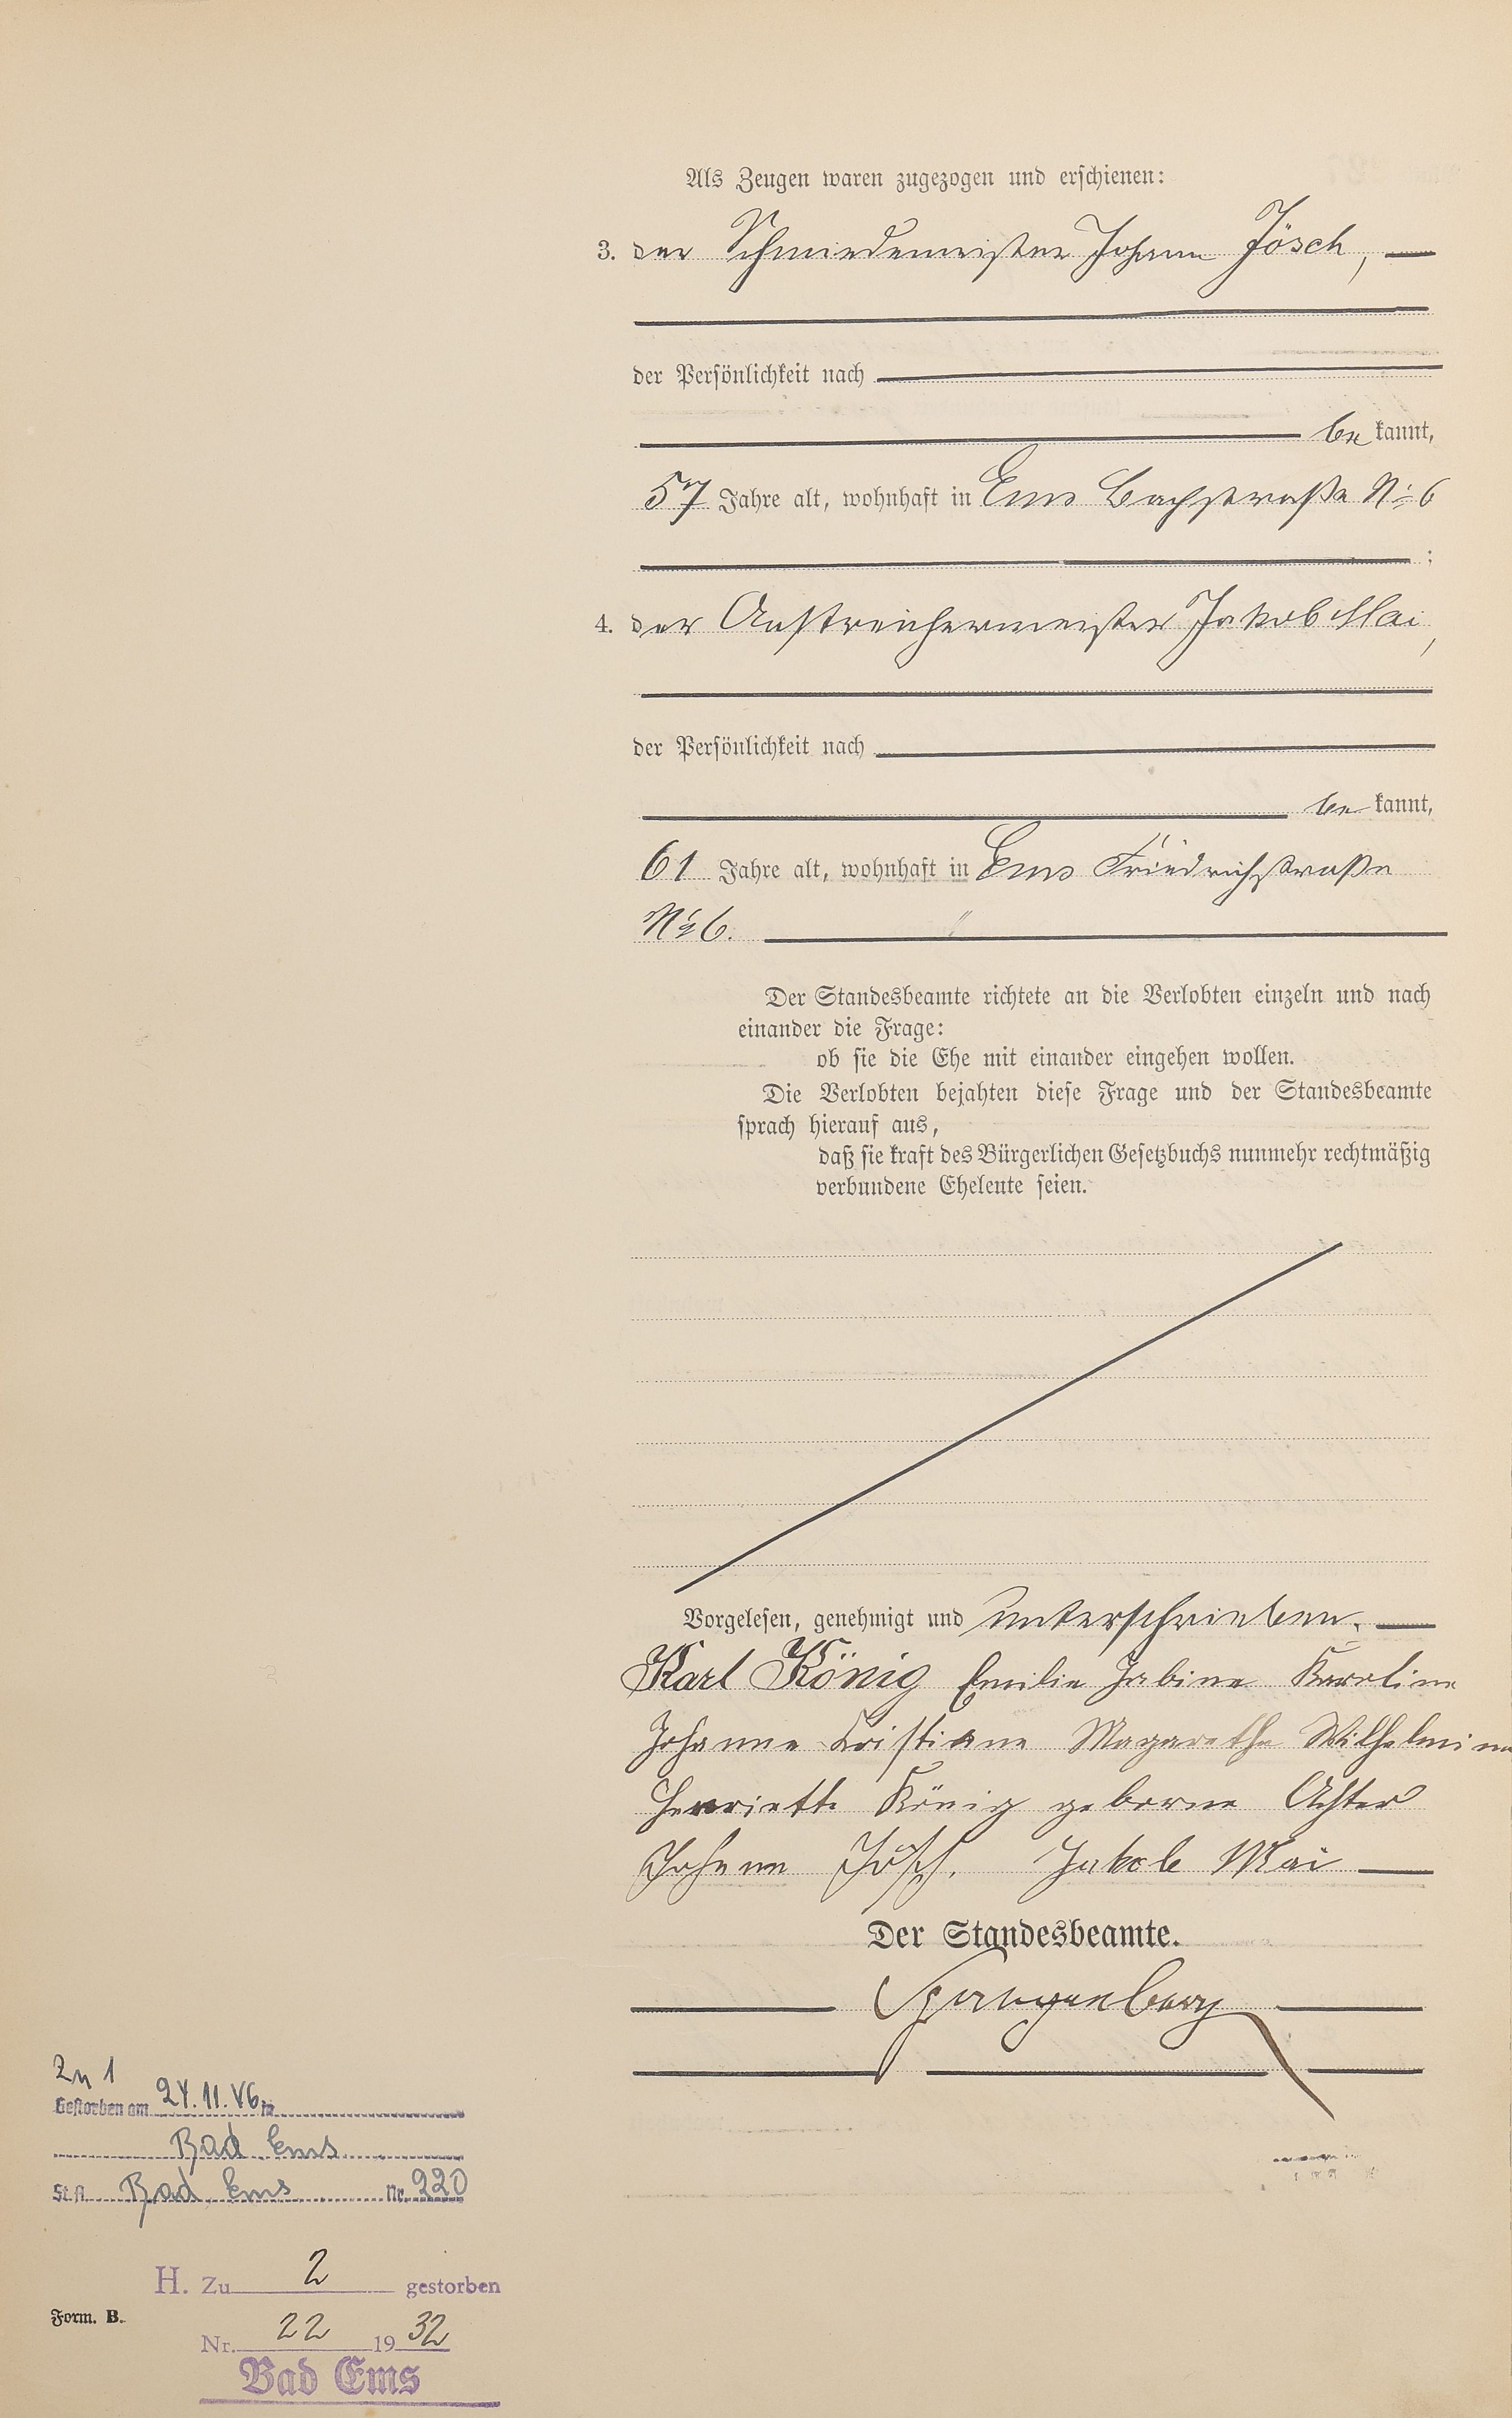 Als Zeugen waren zugezogen und erschienen:
3. der Schmiedemeister Johann Jösch,
der Persönlichkeit nach
be kannt,
57 Jahre alt, wohnhaft in Ems Bachstraße No 6
;
4. der Anstreichermeister Jakob Mai,
der Persönlichkeit nach
be kannt,
61 Jahre alt, wohnhaft in Ems Friedrichstraße
No 6.
Der Standesbeamte richtete an die Verlobten einzeln und nach
einander die Frage:
ob sie die Ehe mit einander eingehen wollen.
Die Verlobten bejahten diese Frage und der Standesbeamte
sprach hierauf aus,
daß sie kraft des Bürgerlichen Gesetzbuchs nunmehr rechtmäßig
verbundene Eheleute seien.
Vorgelesen, genehmigt und unterschrieben.
Karl König Emilie Sabine Karoline
Johanne Cristiane Magarethe Wilhelmine
Henriette König geborne Achter
Johann Jösch. Jakob Mai
Der Standesbeamte.
Spangenberg
Zu 1
Gestorben am 24.11.46 in
Bad Ems
St.A. Bad Ems Nr. 220
H. Zu 2 gestorben
Form. B.
Nr. 22 19 32
Bad Ems